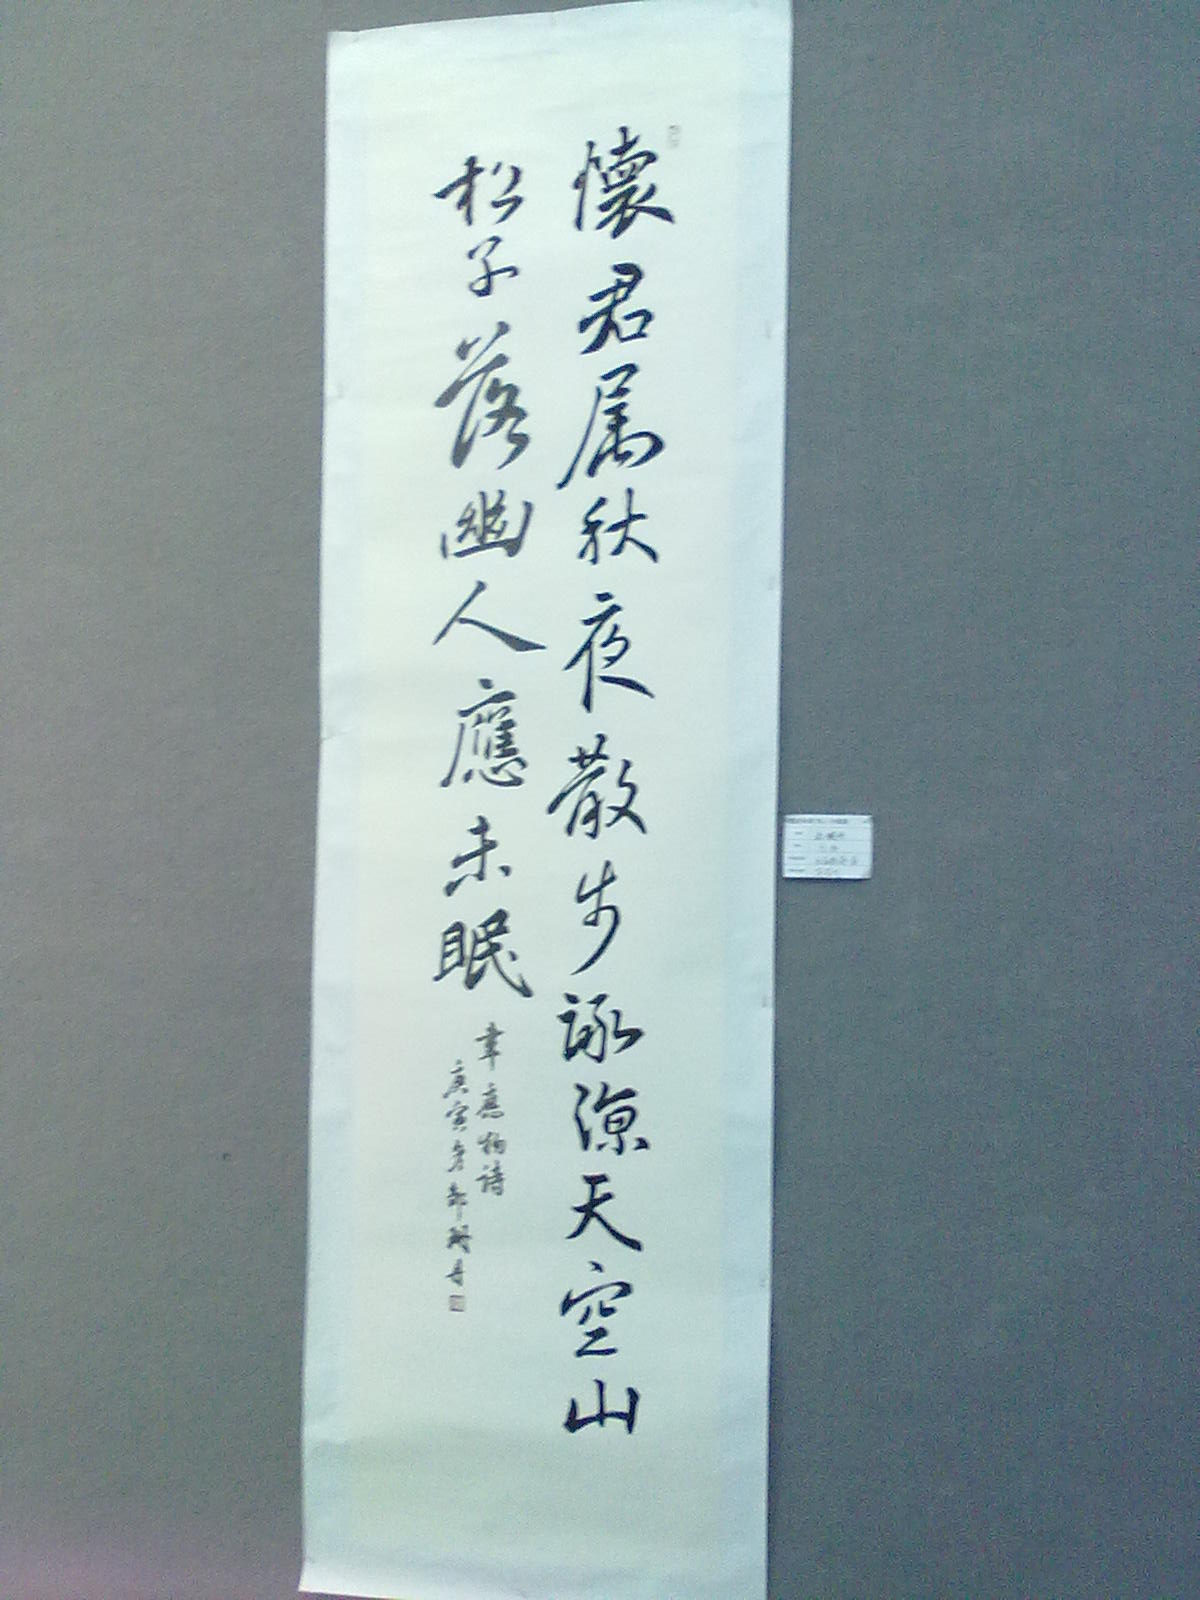 懷君属秋夜散步詠涼天空山
松子落幽人應未眠
韋應物詩
庚寅